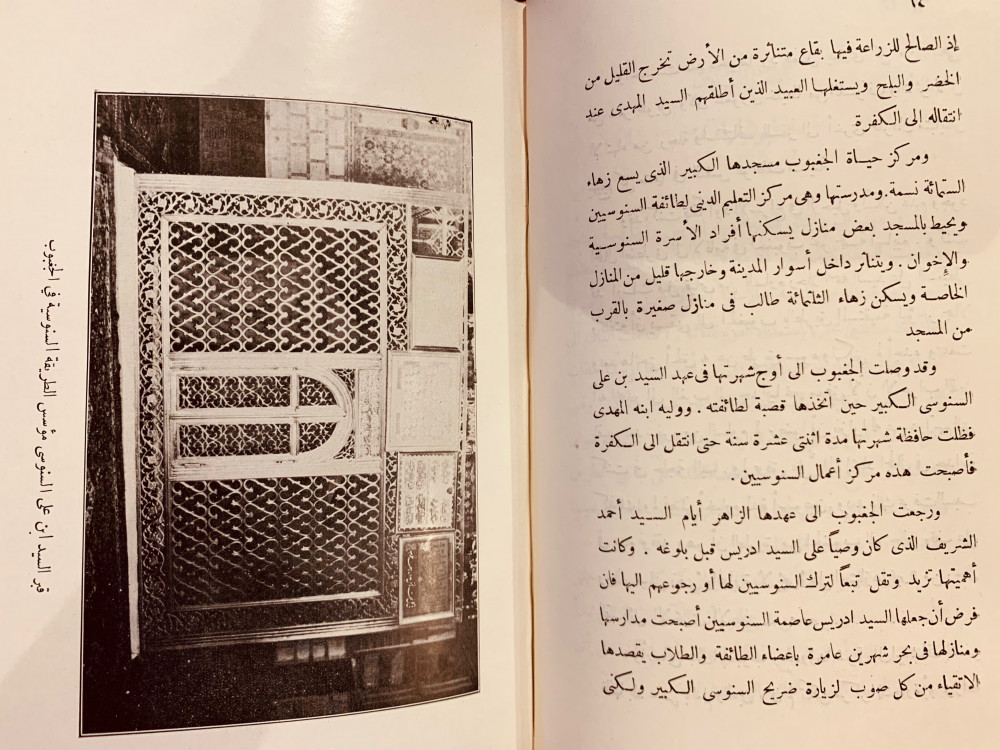 ١٤
إذ الصالح للزراعة فيها بقاع متناثرة من الأرض تخرج القليل من
الخضر والبلح ويستغلها العبيد الذين أطلقهم السيد المهدى عند
انتقاله الى الكفرة
ومركز حياة الجغبوب مسجدها الكبير الذى يسع زهاء
الستمائة نسمة. ومدرستها وهى مركز التعليم الدينى لطائفة السنوسيين
ويحيط بالمسجد بعض منازل يسكنها أفراد الأسرة السنوسية
والإخوان . ويتناثر داخل أسوار المدينة وخارجها قليل من المنازل
الخاصة ويسكن زهاء الثلثمائة طالب فى منازل صغيرة بالقرب
من المسجد
وقد وصلت الجغبوب الى أوج شهرتها فى عهد السيد بن على
السنوسى الكبير حين اتخذها قصبة لطائفته . ووليه ابنه المهدى
فظلت حافظة شهرتها مدة اثنتى عشرة سنة حتى انتقل الى الكفرة
فأصبحت هذه مركز أعمال السنوسيين .
ورجعت الجغبوب الى عهدها الزاهر أيام السيد أحمد
الشريف الذى كان وصياً على السيد ادريس قبل بلوغه . وكانت
أهميتها تزيد وتقل تبعاً لترك السنوسيين لها أو رجوعهم اليها فان
فرض أن جعلها السيد ادريس عاصمة السنوسيين أصبحت مدارسها
ومنازلها فى بحر شهرين عامرة باعضاء الطائفة والطلاب يقصدها
الاتقياء من كل صوب لزيارة ضريح السنوسى الكبير ولكنى
قبر السيد ابن على السنوسى مؤسس الطريقة السنوسية في الجغبوب